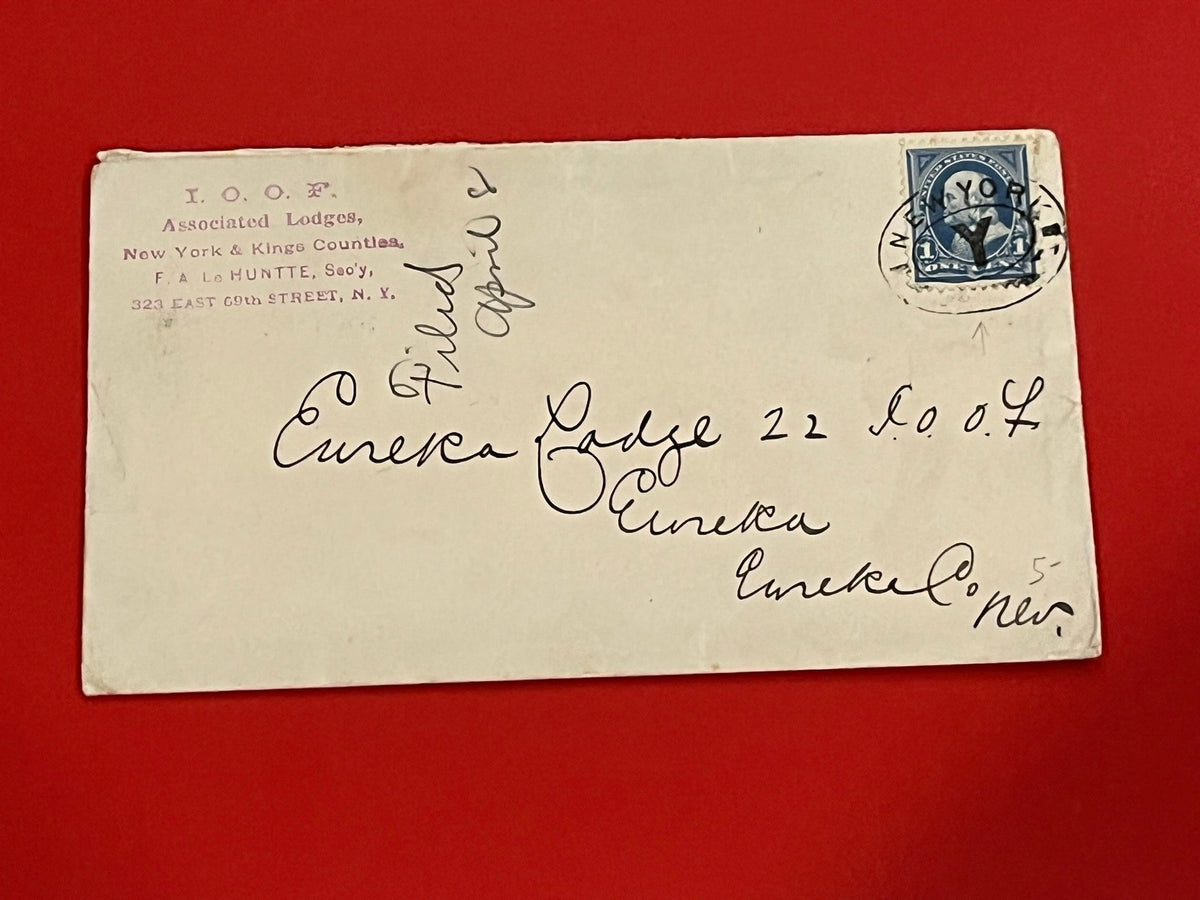 I. O. O. F.
Associated Lodges,
New York & Kings Counties,
F. A. Le HUNTTE, Sec'y,
323 EAST 69th STREET, N. Y.
Filed
April 8
UNITED STATES POST
NEW YORK
Y
1 1
ONE CENT
Eureka Lodge 22 I.O.O.F
Eureka
Eureka Co.
5-
Nev.